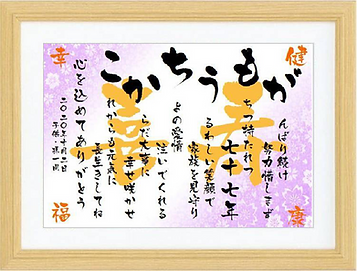 喜寿
がんばり続け
努力惜しまず
もちつ持たれつ
七十七年
うるわしい笑顔で
家族を見守り
ちよの愛情
注いでくれる
からだ大事に
幸せ咲かせ
これからも元気に
長生きしてね
心を込めてありがとう
二〇二〇年十月二日
子供・孫一同
健
康
幸
福